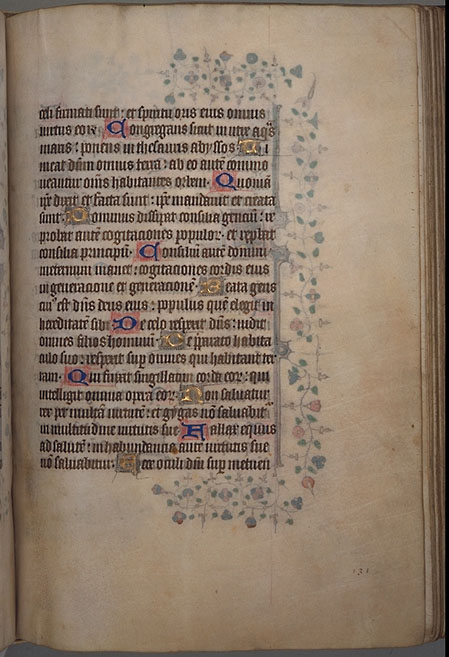 celi firmati sunt: et spiritu oris eius omnis
uirtus eoꝝ. Congregans sicut in utre aq̄s
maris: ponens in thesauris abyssos. Ti
meat dn̄m omnis terra: ab eo autē commo
ueantur om̄s habitantes orbem. Quoniā
ip̄e dixit et facta sunt: ip̄e mandauit et creata
sunt. Dominus dissipat consilia genciū: re
probat autē cogitaciones populoꝝ. et reprobat
consilia principū. Consiliū autē domini
in eternum manet: cogitaciones cordis eius
in generacione et generacionē. Beata gens
cuiꝰ est dn̄s deus eius: populus quē elegit in
hereditatē sibi. De celo respexit dn̄s: uidit
omnes filios hominū. De p̄parato habita
culo suo: respexit suꝑ omnes qui habitant ter
ram. Qui finxit singillatim corda eoꝝ: qui
intelligit omnia opera eoꝝ. Non saluatur
rex per multā uirtutē: et gygas nō saluabit᷑
in multitudine uirtutis sue. Fallax equus
ad salutē: in habundancia autē uirtutis sue
nō saluabitur. Ecce oculi dn̄i suꝑ metuen
131